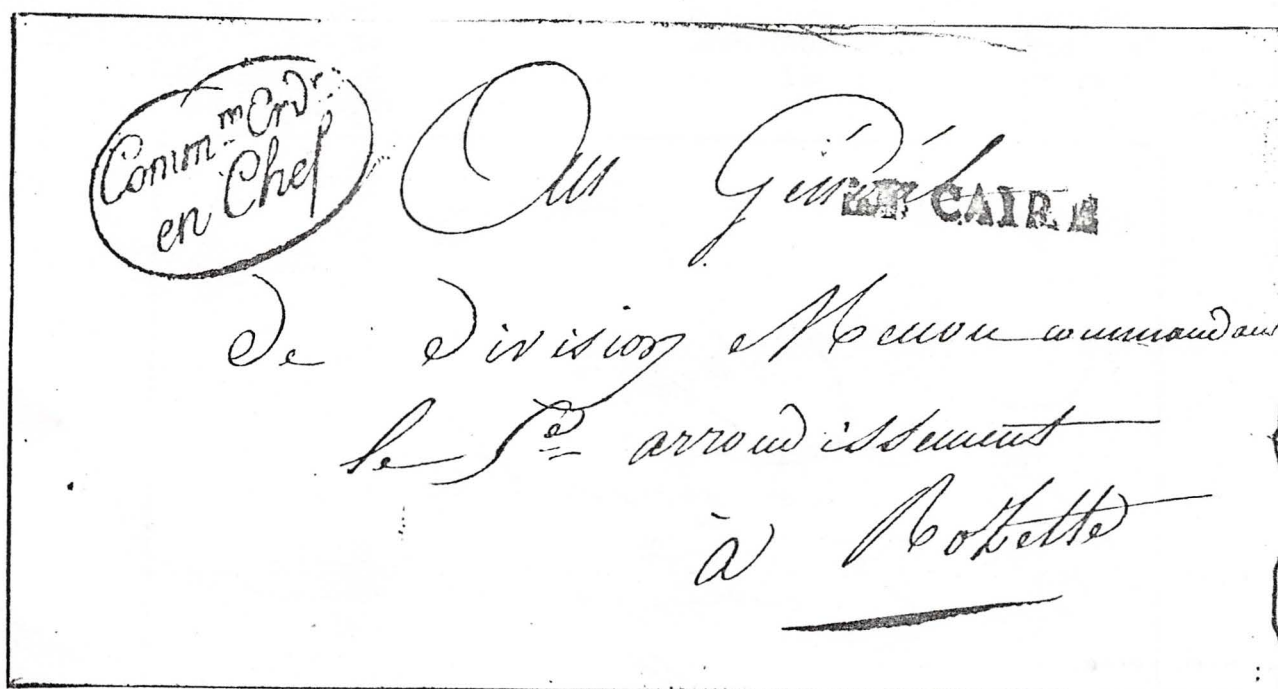 Comm.m Ord.r
en Chef
Au Général
LE CAIRE
de division Menou commandant
le 5e arrondissement
à Rozette